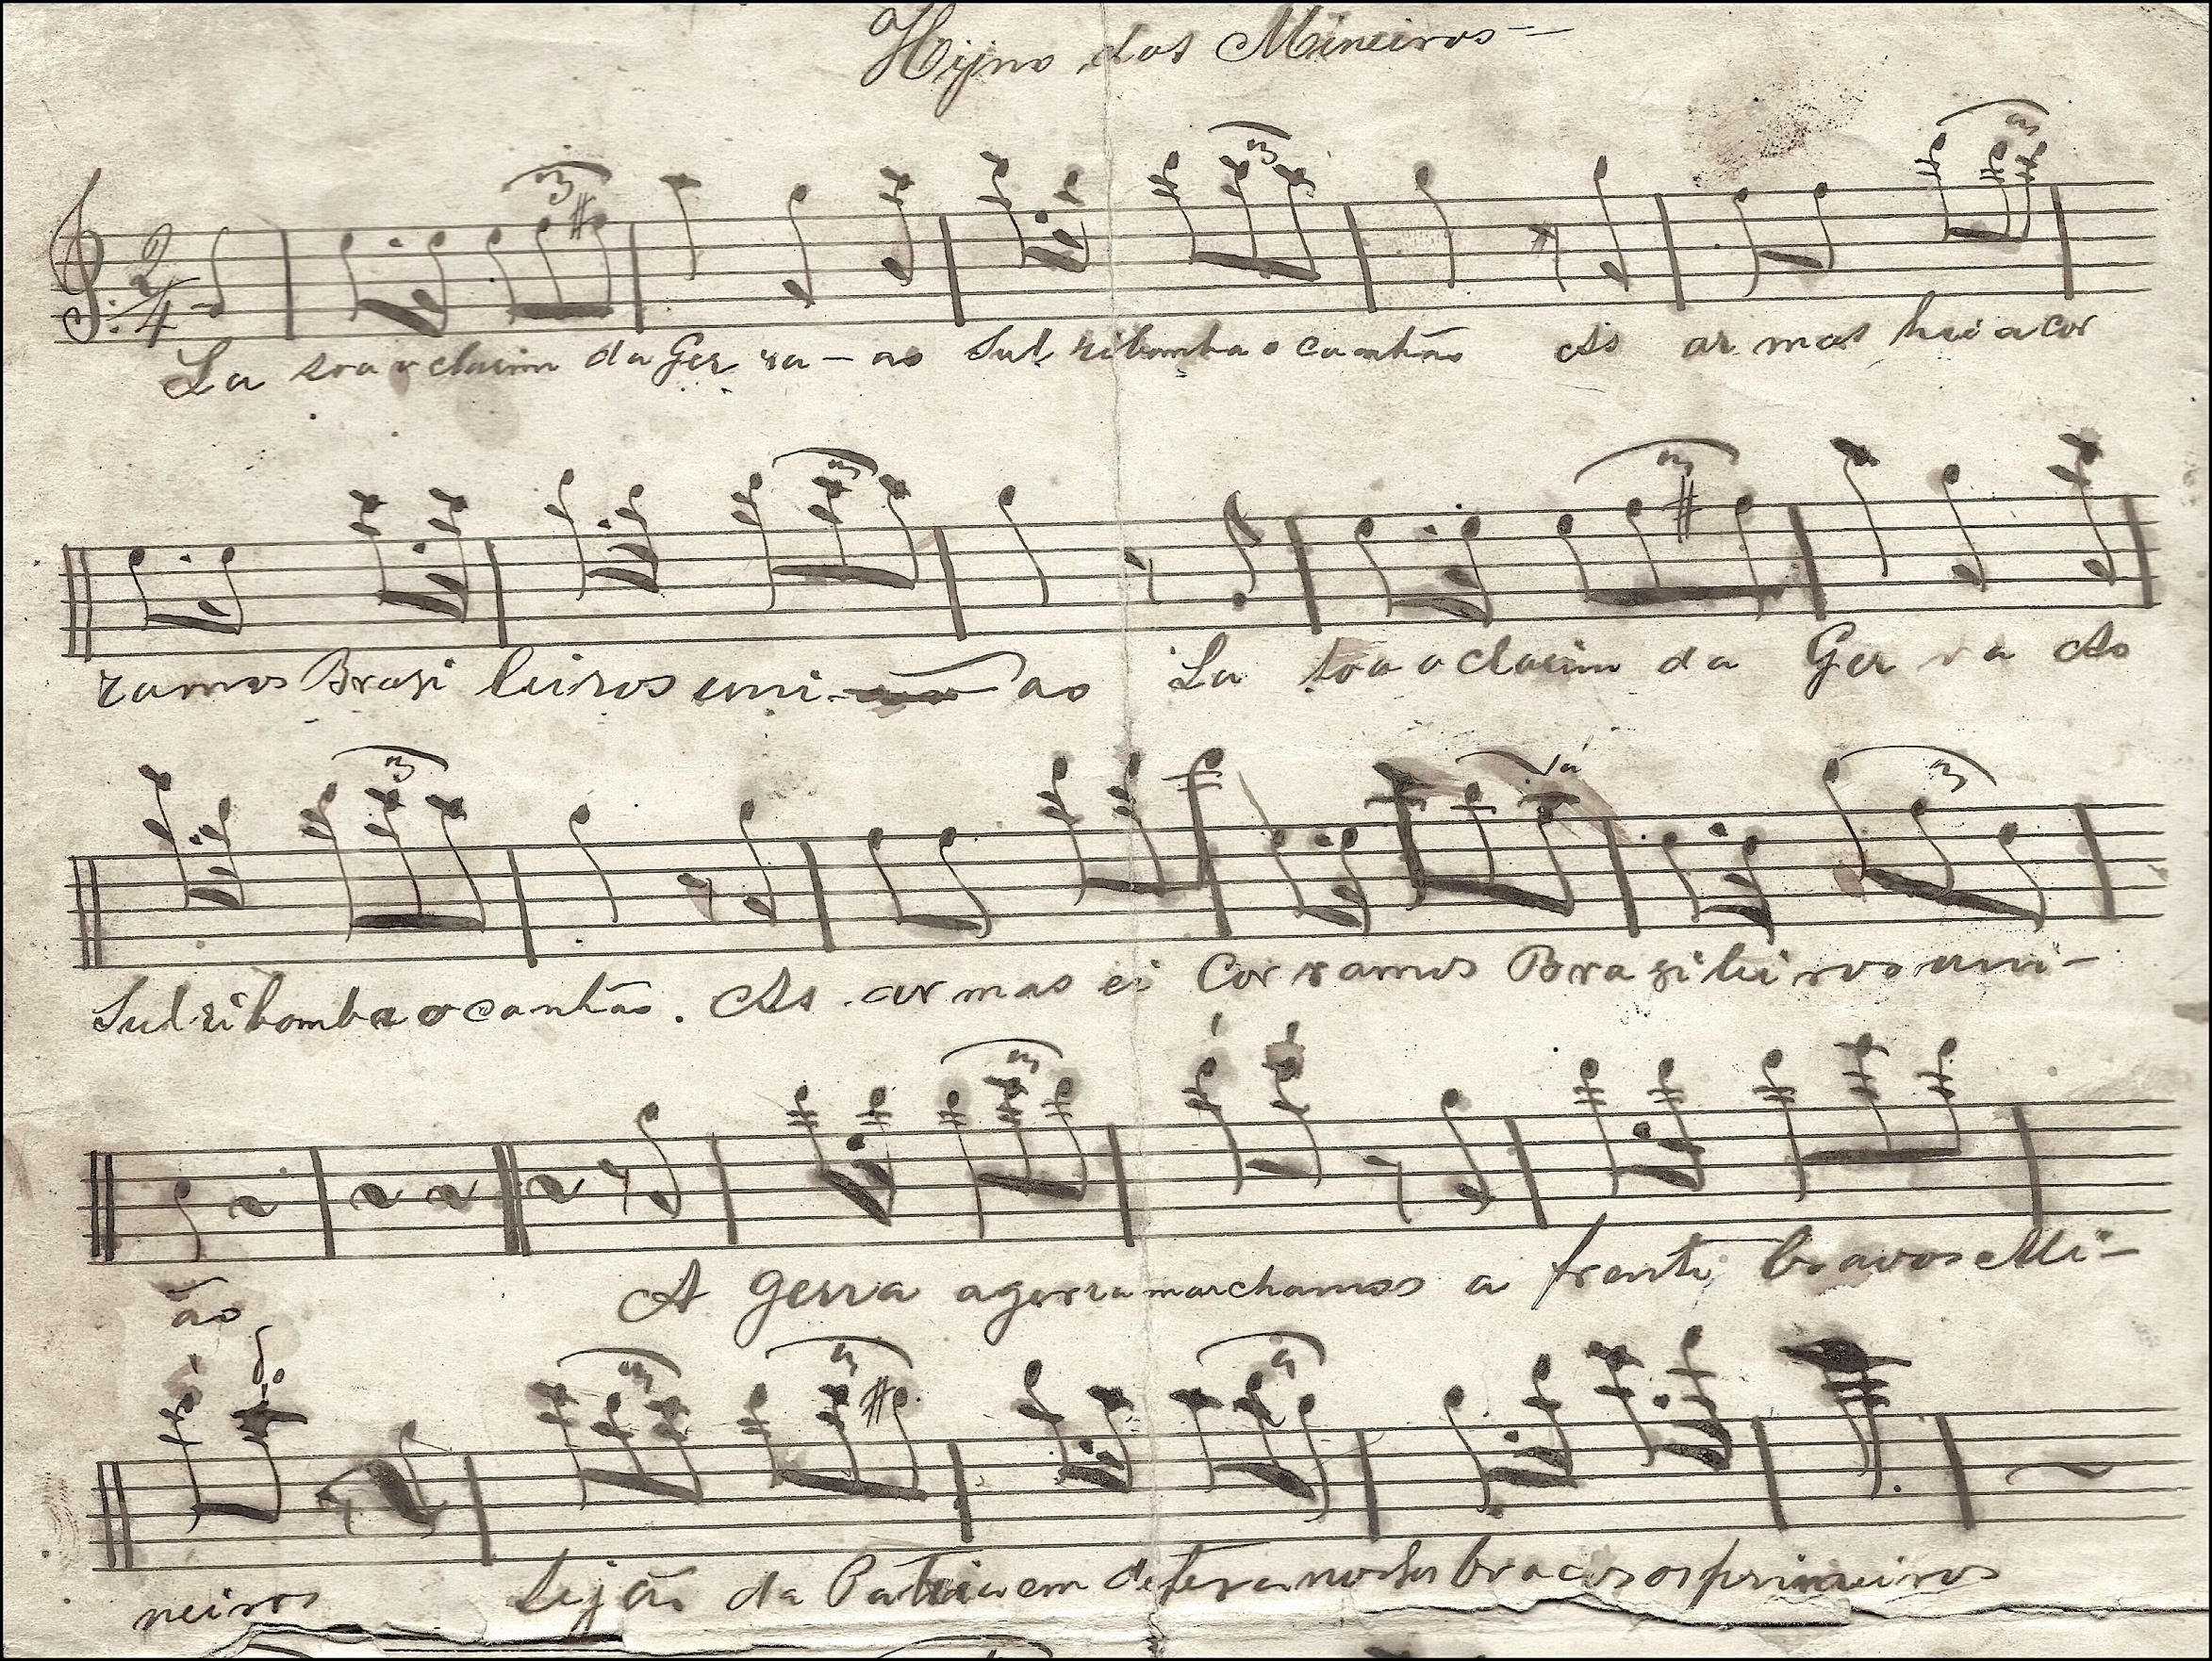 Hijno dos Mineiros
La soa o clarim da Ger ra - ao Sul ribomba o canhão As ar mas hei a cor
ramos Brazi leiros uni ao La soa o clarim da Ger ra Ao
Sul ribomba o canhão. As ar mas ei Cor ramos Bra zi lei ros uni -
ão A gerra agorra marchamos a frente bravos Mi -
do
neiros sejão da Patria em defera nossos bracos os primeiros